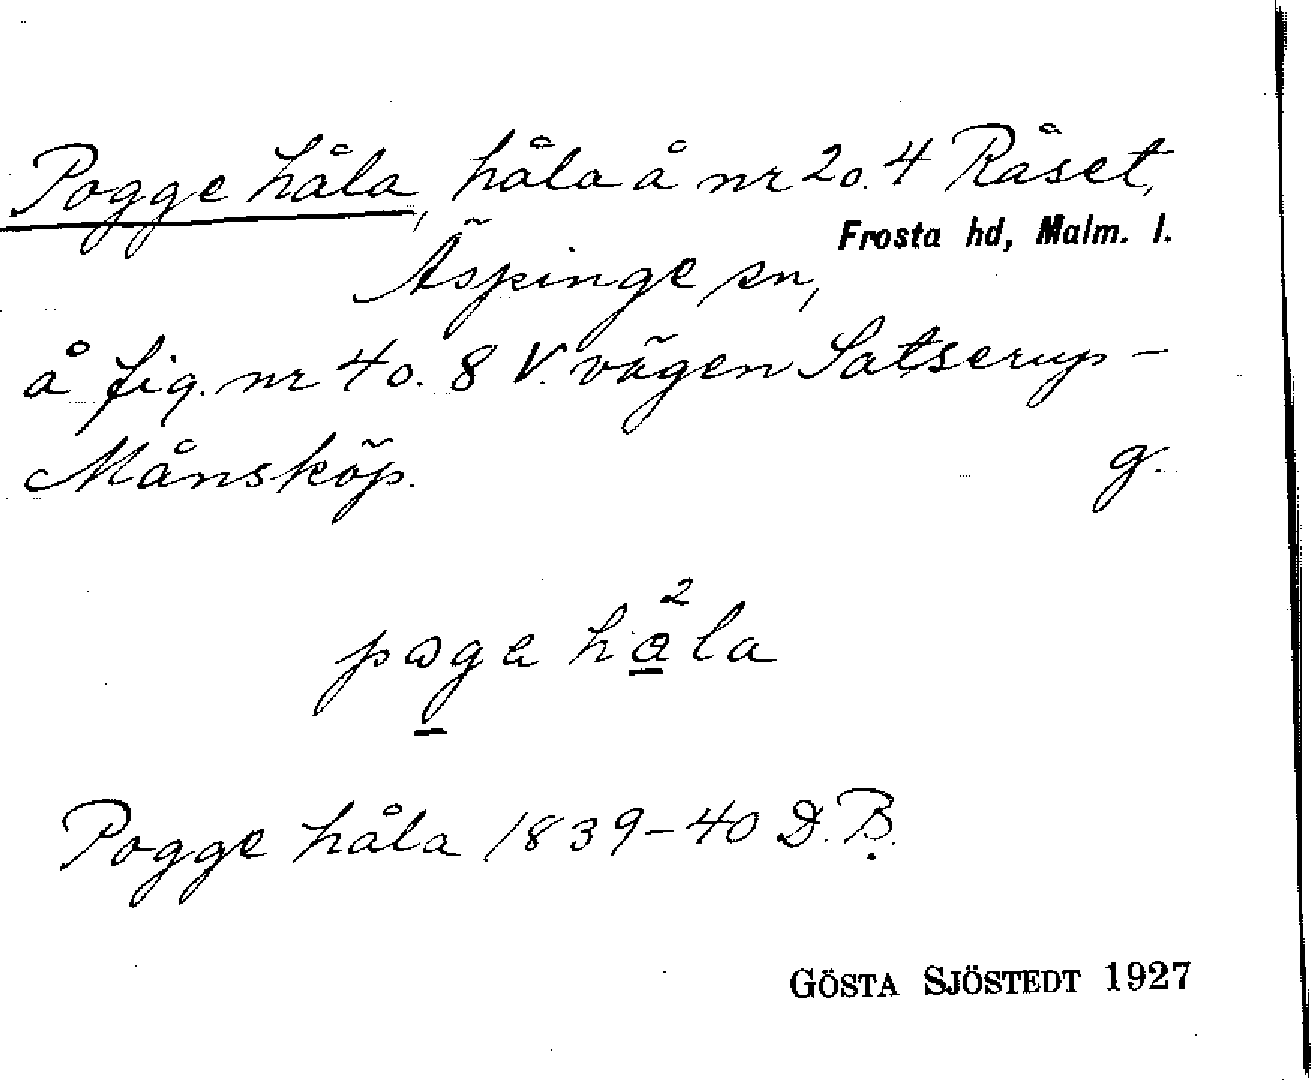 Pogge håla, håla å nr 20. 4 Råset,
Frosta hd, Malm. l.
Äspinge sn,
å fig. nr 40. 8 V. vägen Satserup -
Månsköp. g.
2
poga håla
Pogge håla 1839-40 D. B.
GÖSTA SJÖSTEDT 1927